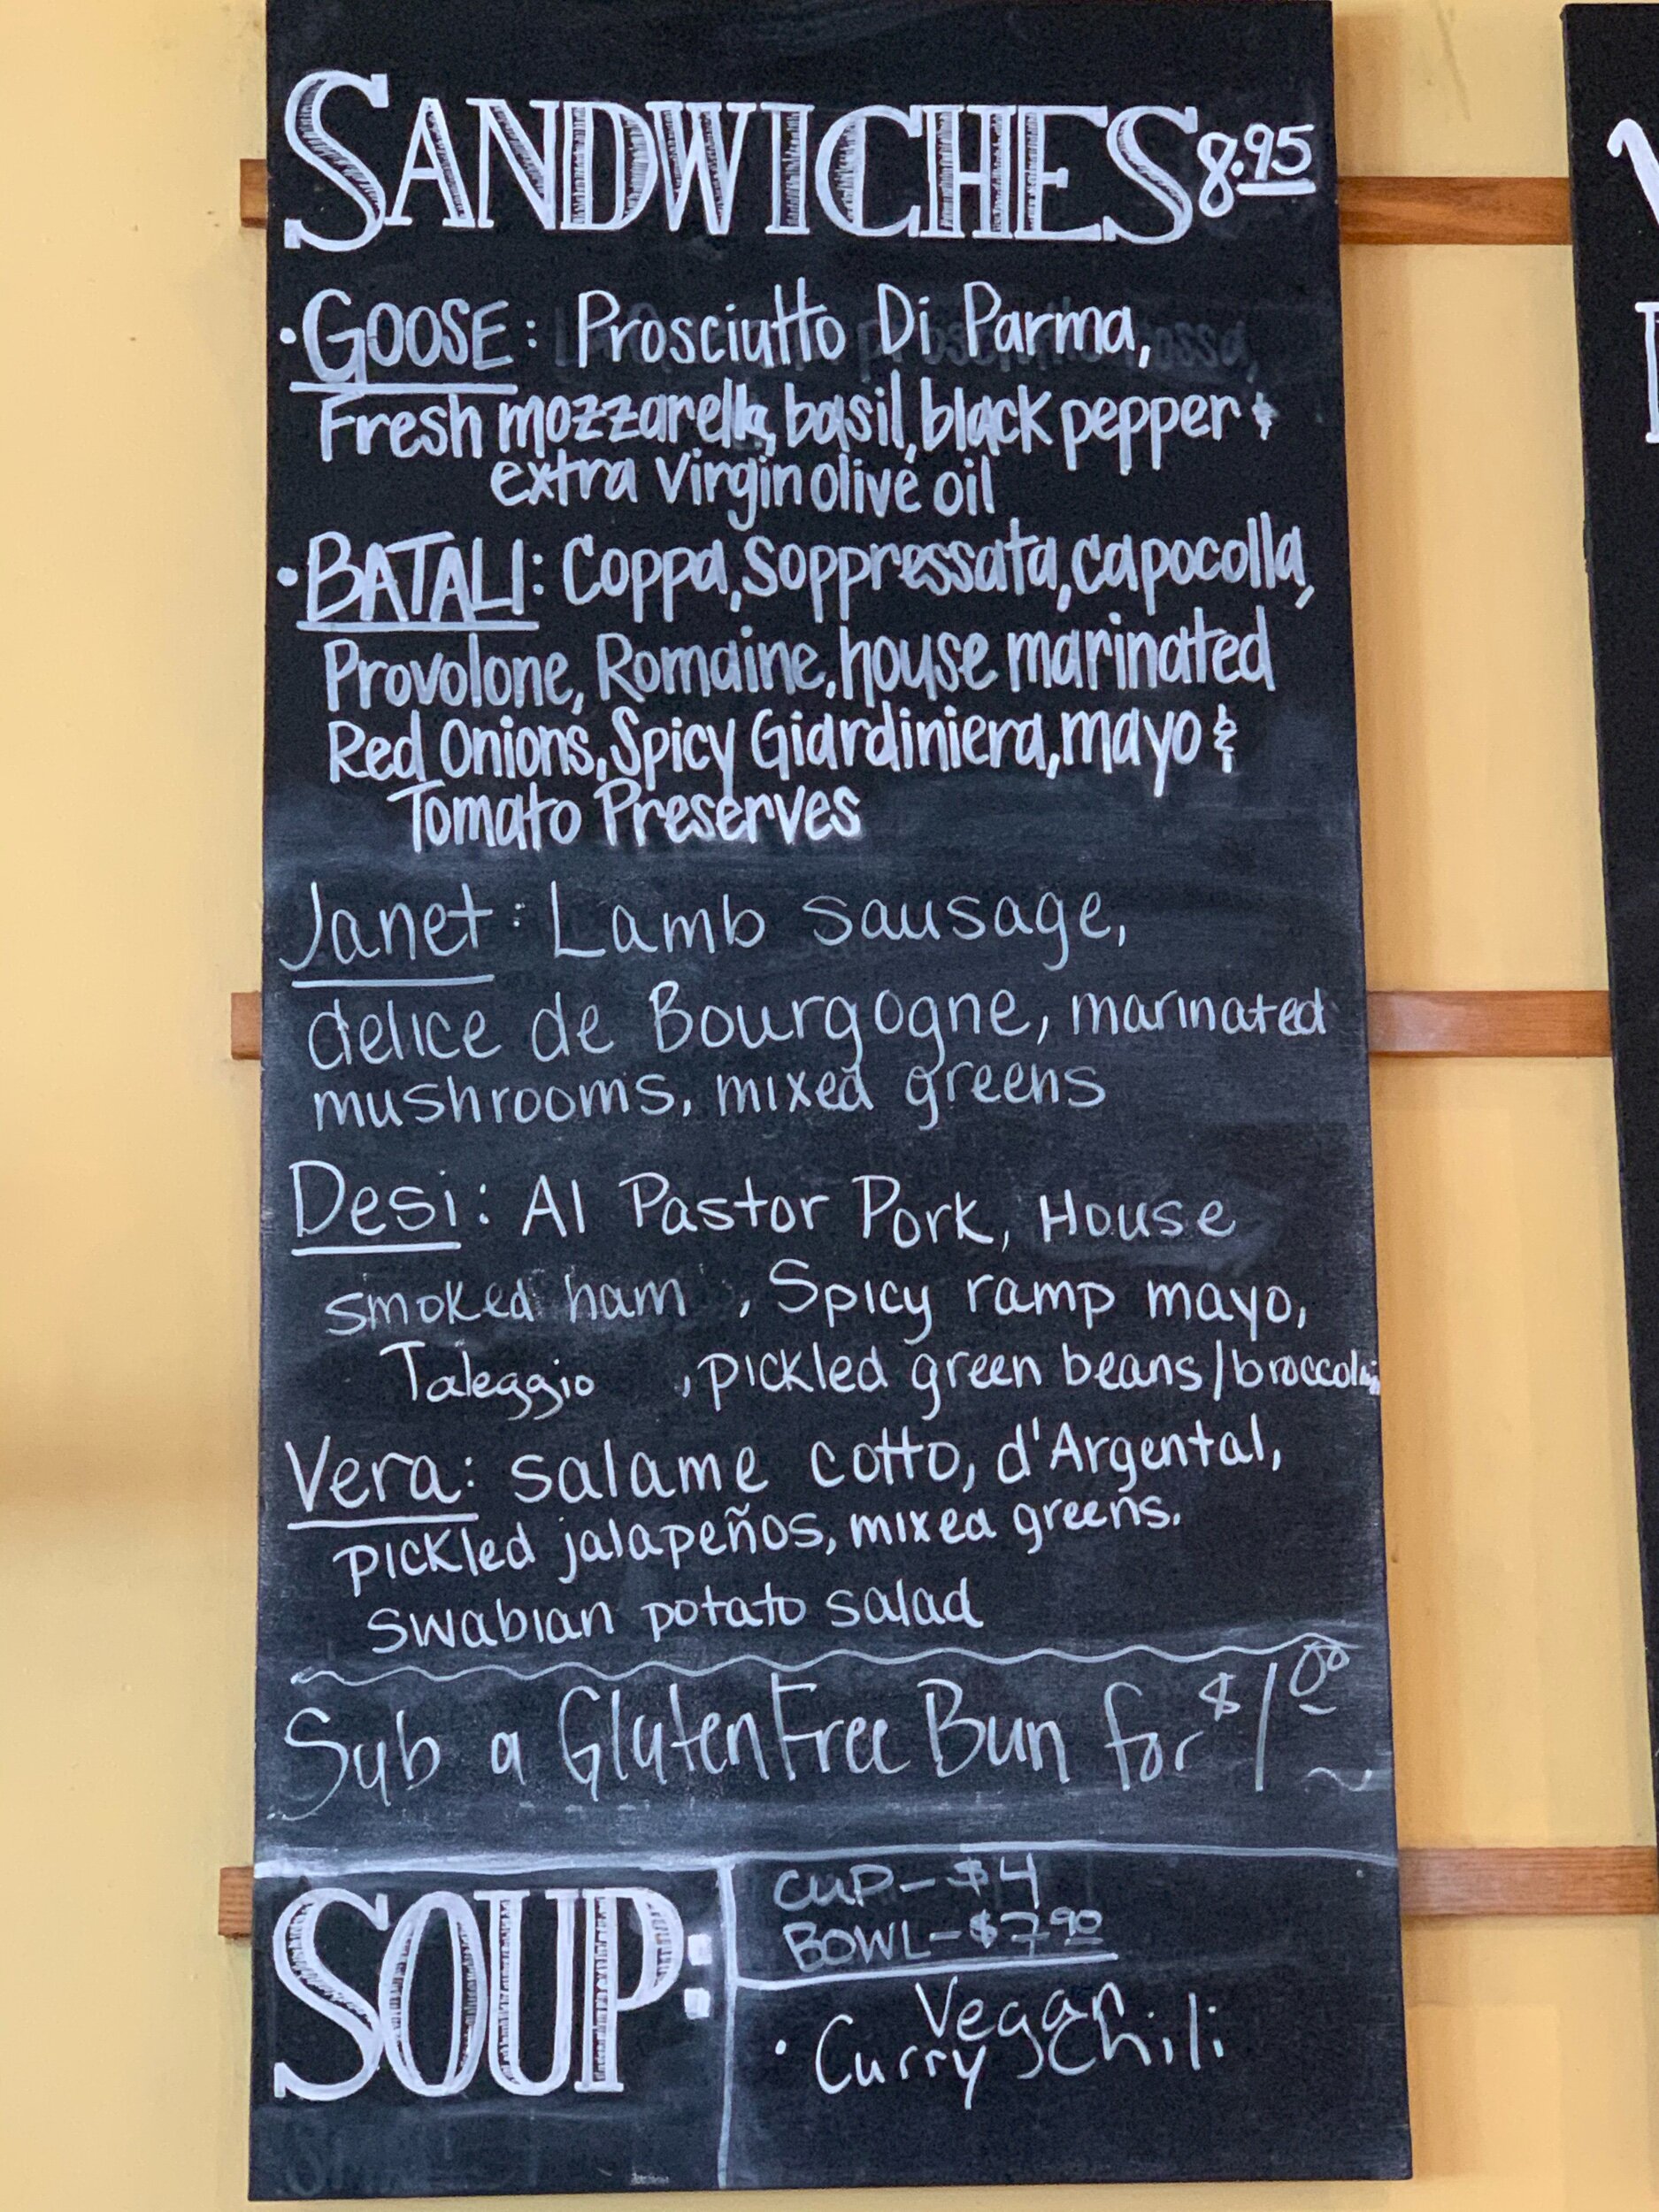 SANDWICHES 8.95
·GOOSE: Prosciutto Di Parma,
Fresh mozzarella, basil, black pepper &
extra virgin olive oil
·BATALI: Coppa, Soppressata, capocolla,
Provolone, Romaine, house marinated
Red Onions, Spicy Giardiniera, mayo &
Tomato Preserves
Janet: Lamb sausage,
delice de Bourgogne, marinated
mushrooms, mixed greens
Desi: Al Pastor Pork, House
smoked ham, Spicy ramp mayo,
Taleggio, pickled green beans/broccolini
Vera: salame cotto, d'Argental,
pickled jalapeños, mixed greens.
swabian potato salad
Sub a Gluten Free Bun for $1.00
SOUP:
CUP-$4
BOWL-$7.90
Vegan
· Curry Chili